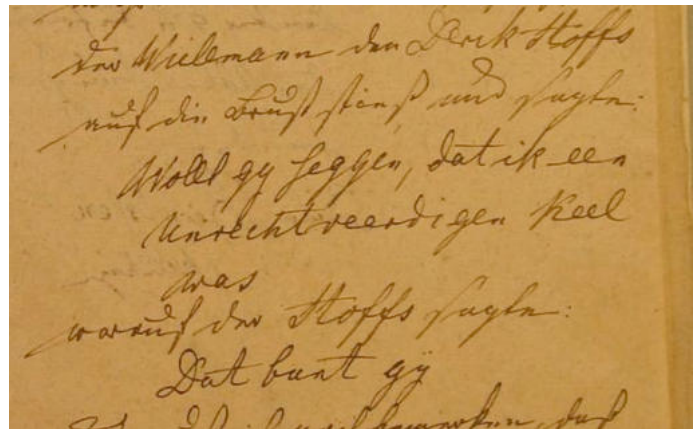 der Wielemann den Derik Stoffs
auf die Brust stieß und sagte:
Woll gy seggen, dat ik een
unrechtveerdigen Keel
was
worauf der Stoffs sagte:
Dat bunt gy
noch bemerken, daß